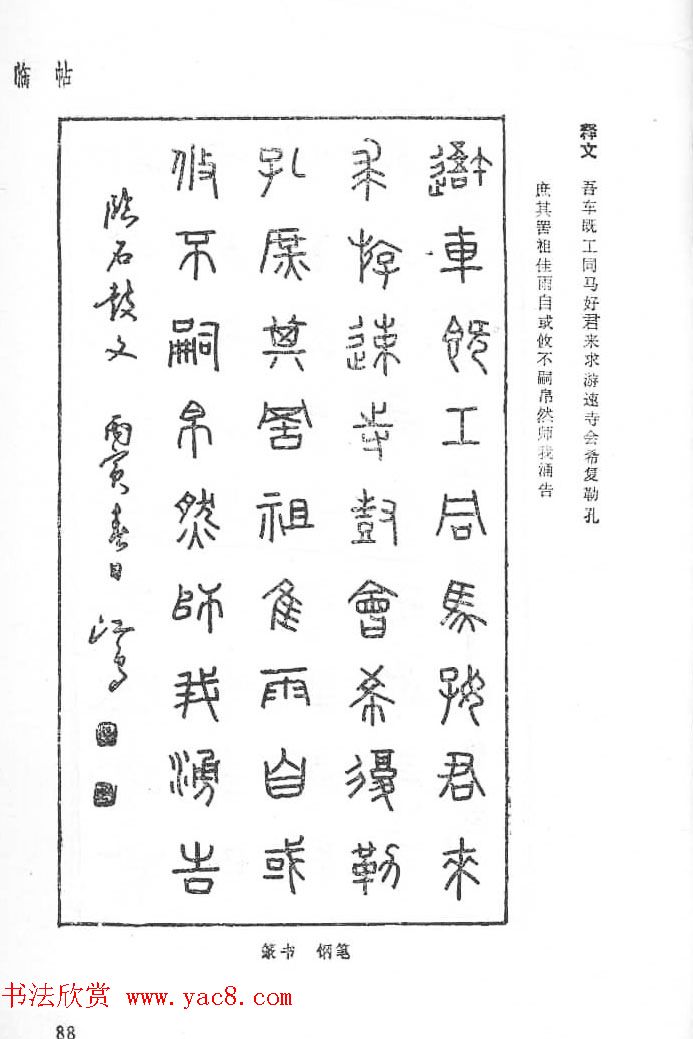 临帖
释文 吾车既工同马好君来求游速寺会希复勒孔
庶其罟祖佳雨自或攸不嗣帛然师我涌告
車既工同馬好君來
求游速寺鼓會希復勒
孔庶其罟祖隹雨自或
攸不嗣帛然師我湧告
临石鼓文 丙寅春日
篆书 钢笔
书法欣赏 www.yac8.com
88